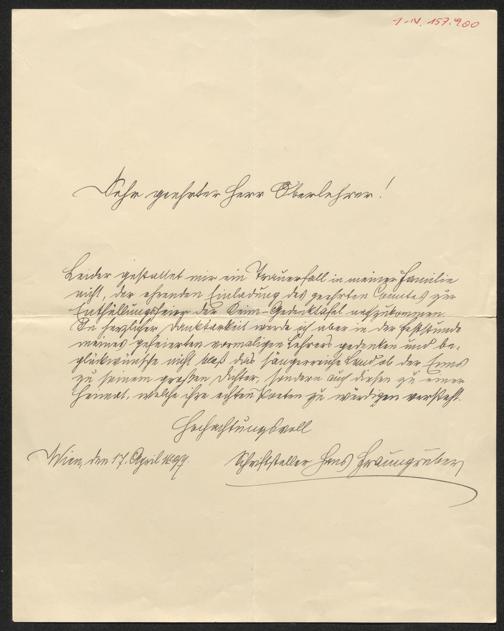 I-N. 157.900
Sehr geehrter Herr Oberlehrer!
Leider gestattet mir ein Trauerfall in meiner Familie
nicht, der ehrenden Einladung des geehrten Comités zur
Enthüllungsfeier der Gedenktafel nachzukommen.
In herzlicher Dankbarkeit werde ich aber in der Feststunde
meines gefeierten vormaligen Lehrers gedenken und be-
glückwünsche nicht bloß das sangesreiche Land ob der Enns
zu seinem großen Dichter, sondern auch diesen zu einer
Heimat, welche ihre echten Poeten zu würdigen versteht.
Hochachtungsvoll
Wien, den 17. April 1897. Schriftsteller Hans Fraungruber